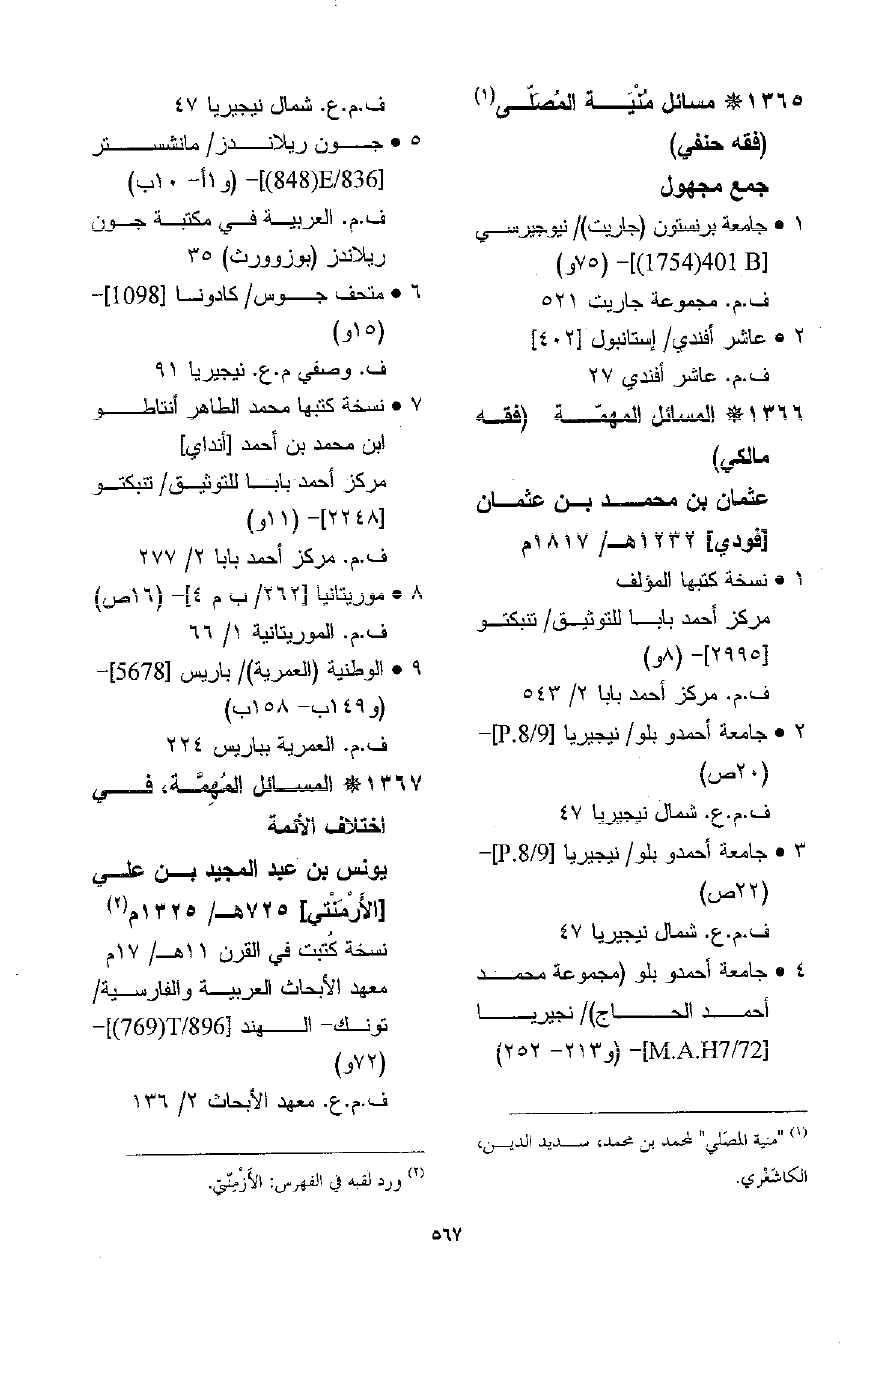 ١٣٦٥ * مسائل مُنْيَة المُصلّى(١)
(فقه حنفي)
جمع مجهول
١ • جامعة برنستون (جاريت)/ نيوجيرسي
[401 B(1754)]- (٧٥و)
ف.م. مجموعة جاريت ٥٢١
٢ • عاشر أفندي/ إستانبول [٤٠٢]
ف.م. عاشر أفندي ٢٧
١٣٦٦ * المسائل المهمّة (فقه
مالكي)
عثمان بن محمد بن عثمان
[فودي] ١٢٣٢هـ/ ١٨١٧م
١ • نسخة كتبها المؤلف
مركز أحمد بابا للتوثيق/ تنبكتو
[٢٩٩٥]- (٨و)
ف.م. مركز أحمد بابا ٢/ ٥٤٣
٢ • جامعة أحمدو بلو/ نيجيريا [P.8/9]-
(٢٠ص)
ف.م.ع. شمال نيجيريا ٤٧
٣ • جامعة أحمدو بلو/ نيجيريا [P.8/9]-
(٢٢ص)
ف.م.ع. شمال نيجيريا ٤٧
٤ • جامعة أحمدو بلو (مجموعة محمد
أحمد الحاج)/ نجيريا
[M.A.H7/72]- (و٢١٣- ٢٥٢)
(١) "منية المصلي" لمحمد بن محمد، سديد الدين،
الكاشَغْري.
ف.م.ع. شمال نيجيريا ٤٧
٥ • جون ريلاندز/ مانشستر
[836/E(848)]- (و١أ- ١٠ب)
ف.م. العربية في مكتبة جون
ريلاندز (بوزوورث) ٣٥
٦ • متحف جوس/ كادونا [1098]-
(١٥و)
ف. وصفي م.ع. نيجيريا ٩١
٧ • نسخة كتبها محمد الطاهر أنتاطو
ابن محمد بن أحمد [أنداي]
مركز أحمد بابا للتوثيق/ تنبكتو
[٢٢٤٨]- (١١و)
ف.م. مركز أحمد بابا ٢/ ٢٧٧
٨ • موريتانيا [٢٦٢/ ب م ٤]- (١٦ص)
ف.م. الموريتانية ١/ ٦٦
٩ • الوطنية (العمرية)/ باريس [5678]-
(و١٤٩ب- ١٥٨ب)
ف.م. العمرية بباريس ٢٢٤
١٣٦٧ * المسائل المُهِمَّة، في
اختلاف الأئمة
يونس بن عبد المجيد بن علي
[الأَرْمَنْتي] ٧٢٥هـ/ ١٣٢٥م(٢)
نسخة كُتبت في القرن ١١هـ/ ١٧م
معهد الأبحاث العربية والفارسية/
تونك- الهند [896/T(769)]-
(٧٢و)
ف.م.ع. معهد الأبحاث ٢/ ١٣٦
(٢) ورد لقبه في الفهرس: الأَرْمِنّيّ.
٥٦٧